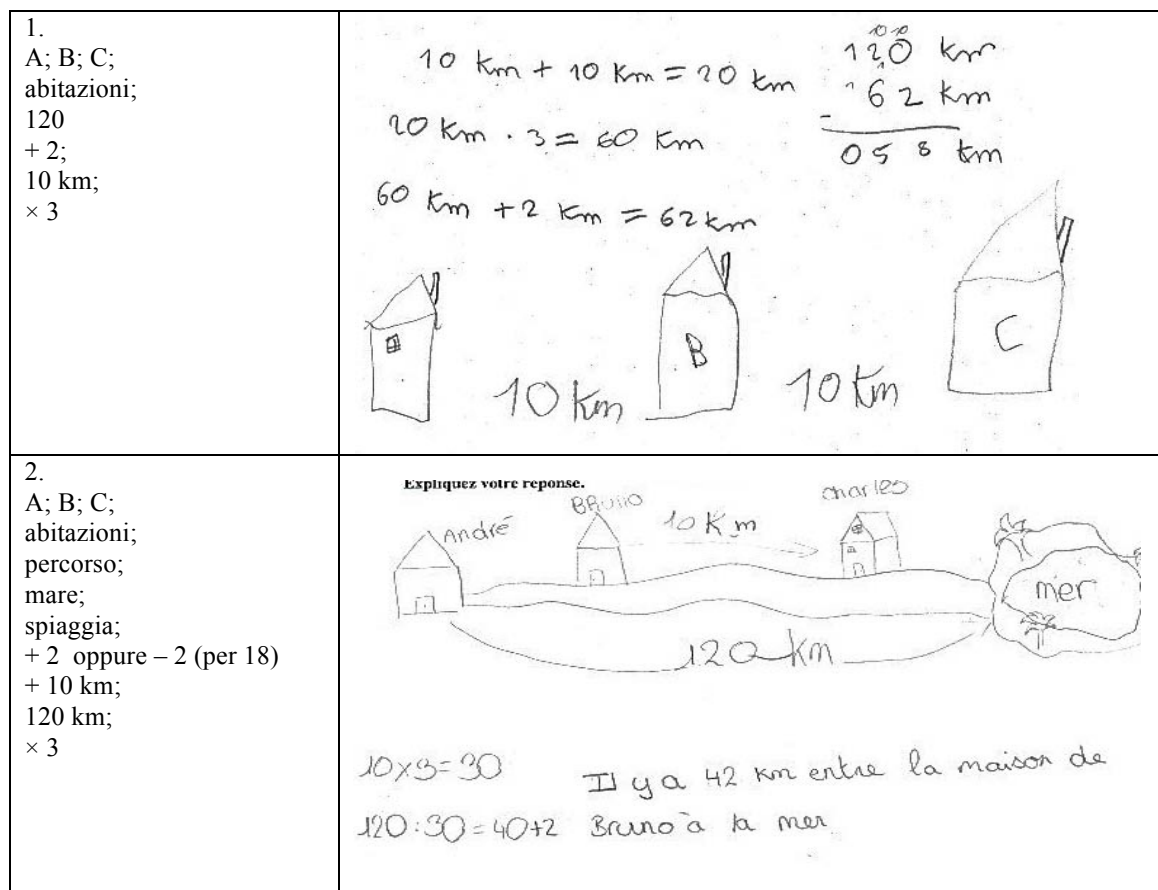 1.
A; B; C;
abitazioni;
120
+ 2;
10 km;
× 3
10 Km + 10 Km = 20 Km
20 Km · 3 = 60 Km
60 Km + 2 Km = 62 Km
10 10
120 Km
1
- 62 Km
058 Km
B
C
10 Km
10 Km
2.
A; B; C;
abitazioni;
percorso;
mare;
spiaggia;
+ 2 oppure – 2 (per 18)
+ 10 km;
120 km;
× 3
Expliquez votre reponse.
André
Bruno
10 Km
Charles
mer
120 Km
10x3=30
120:30=40+2
Il y a 42 Km entre la maison de
Bruno à la mer